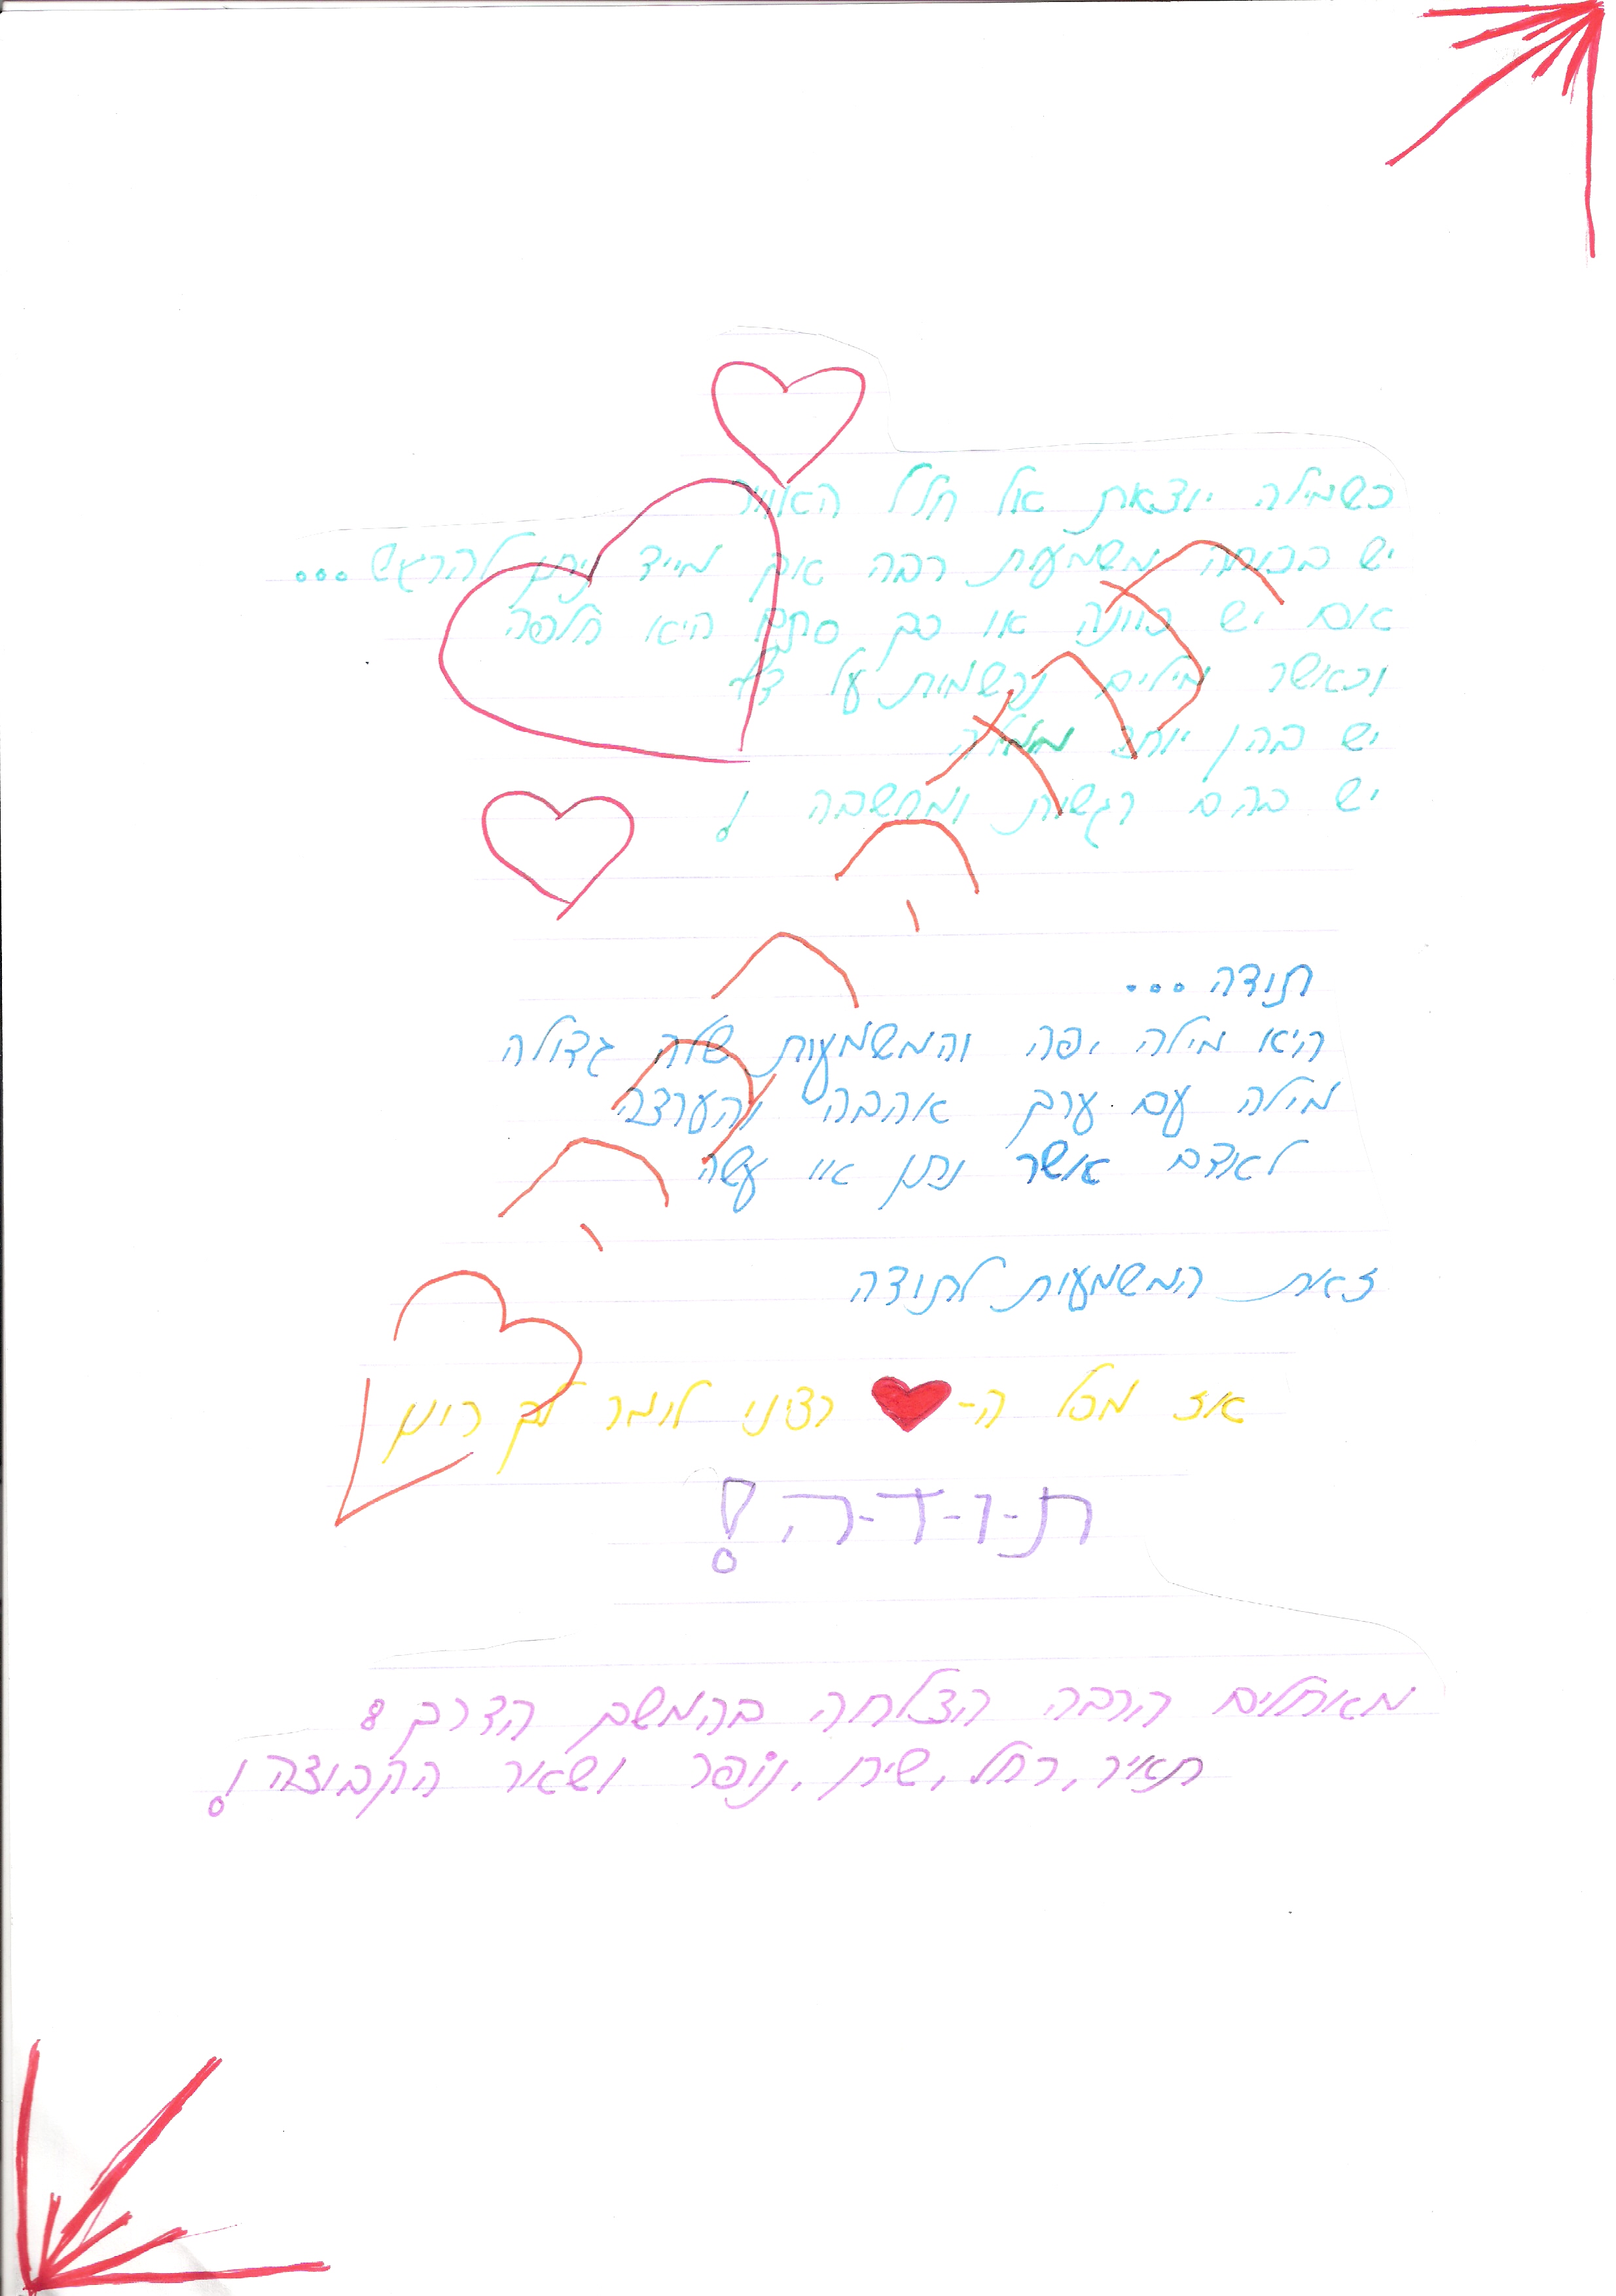 כשמילה יוצאת אל חלל האוויר
יש בכוחה משמעות רבה אך מייד ניתן להרגיש...
אם יש כוונה או כך סתם היא חלפה
וכאשר מילים נרשמות על דף
יש בהן יותר ממילה
יש בהם רגשות ומחשבה!
תודה...
היא מילה יפה והמשמעות שלה גדולה
מילה עם ערך אהבה והערצה
לאדם אשר נתן או עשה
זאת המשמעות לתודה
אז מכל ה-❤ רצינו לומר לך
ת-ו-ד-ה!
מאחלים הרבה הצלחה בהמשך הדרך:
תאיר, רחל, שירן, נופר ושאר הקבוצה!